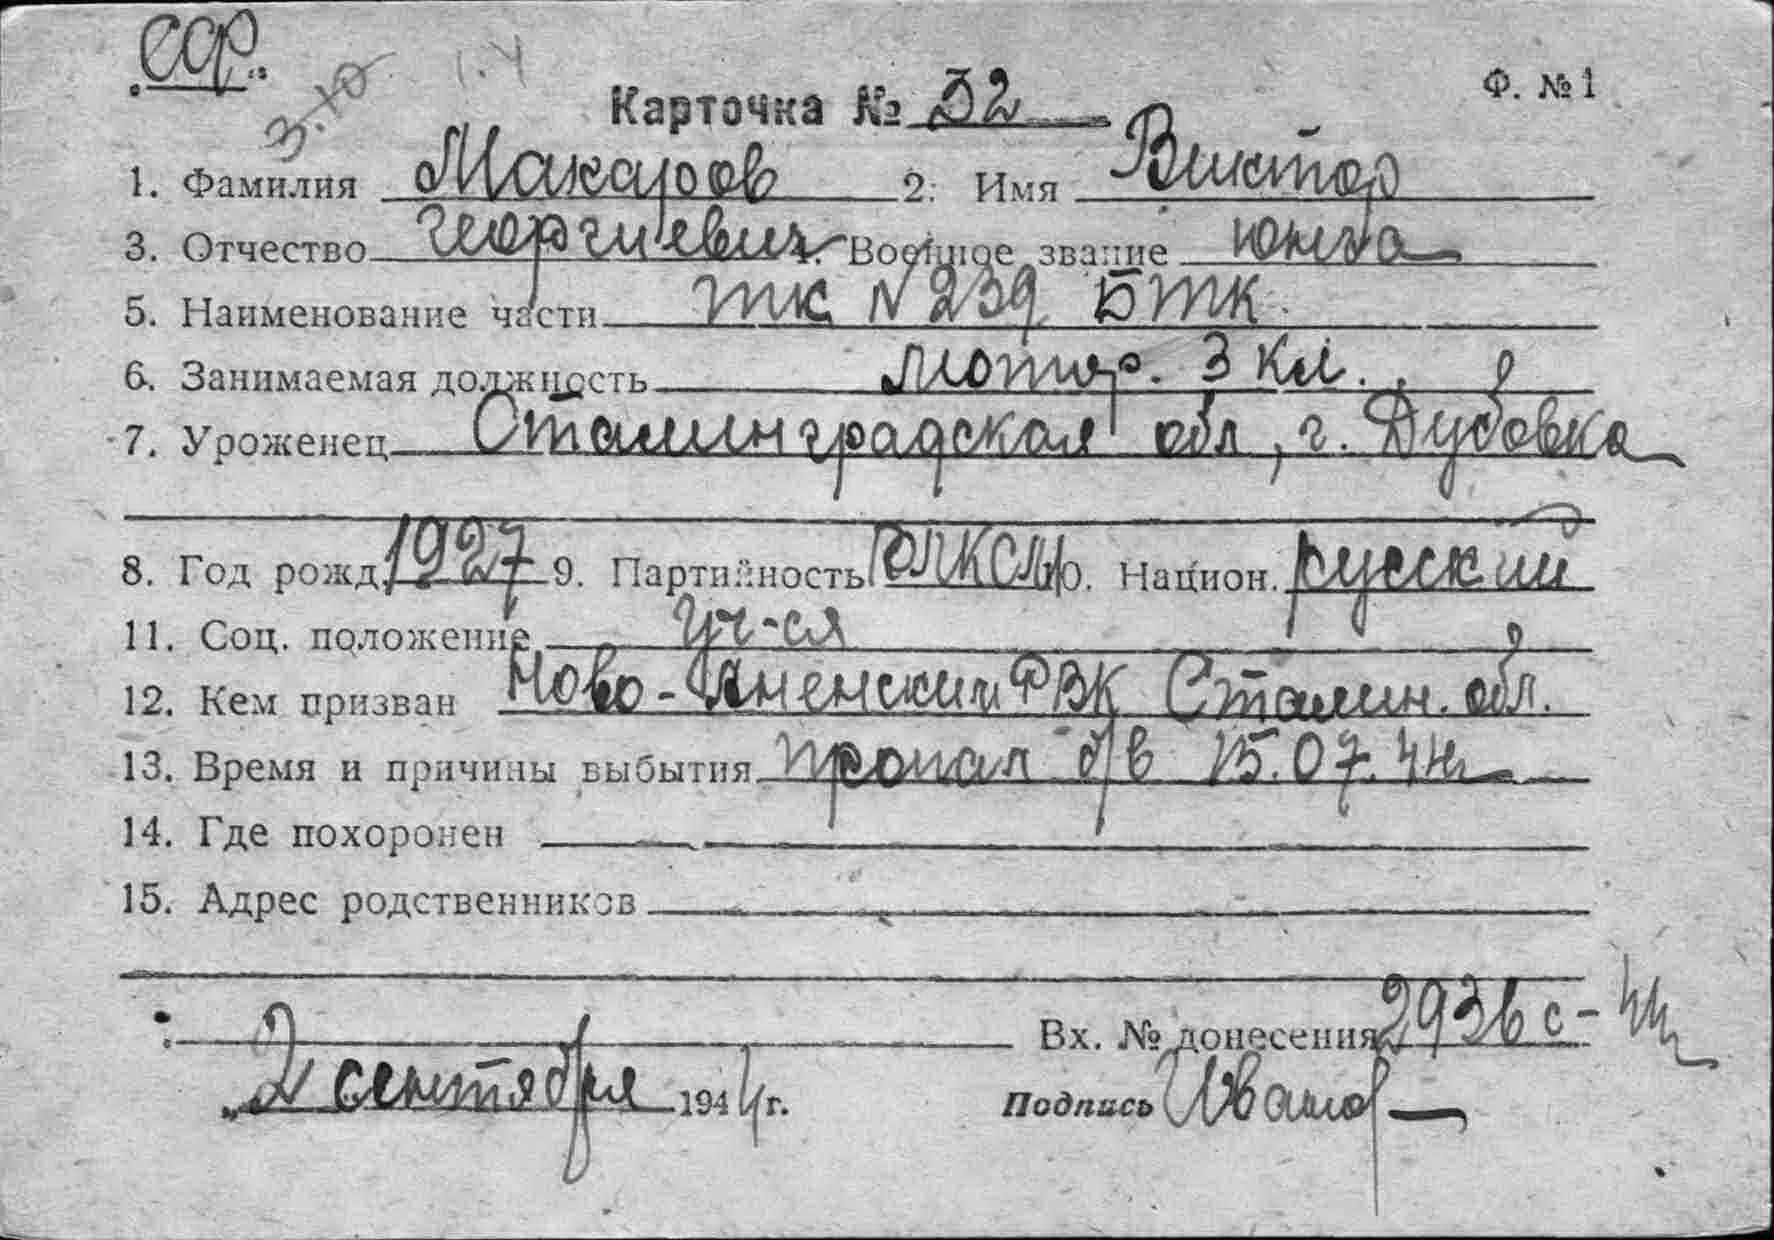 ССР.
3.10
Ф. №1
Карточка № 32
1. Фамилия Макаров 2. Имя Виктор
3. Отчество Георгиевич 4. Военное звание юнга
5. Наименование части ТК №239 БТК
6. Занимаемая должность мотор. 3 кл.
7. Уроженец Сталинградская обл, г. Дубовка
8. Год рожд. 1927 9. Партийность ВЛКСМ 10. Национ. русский
11. Соц. положение уч-ся
12. Кем призван Ново-Аненским РВК Сталин. обл.
13. Время и причины выбытия пропал б/в 15.07.44г
14. Где похоронен
15. Адрес родственников
Вх. № донесения 2936с-44
„2 сентября 1944 г.
Подпись Иванов